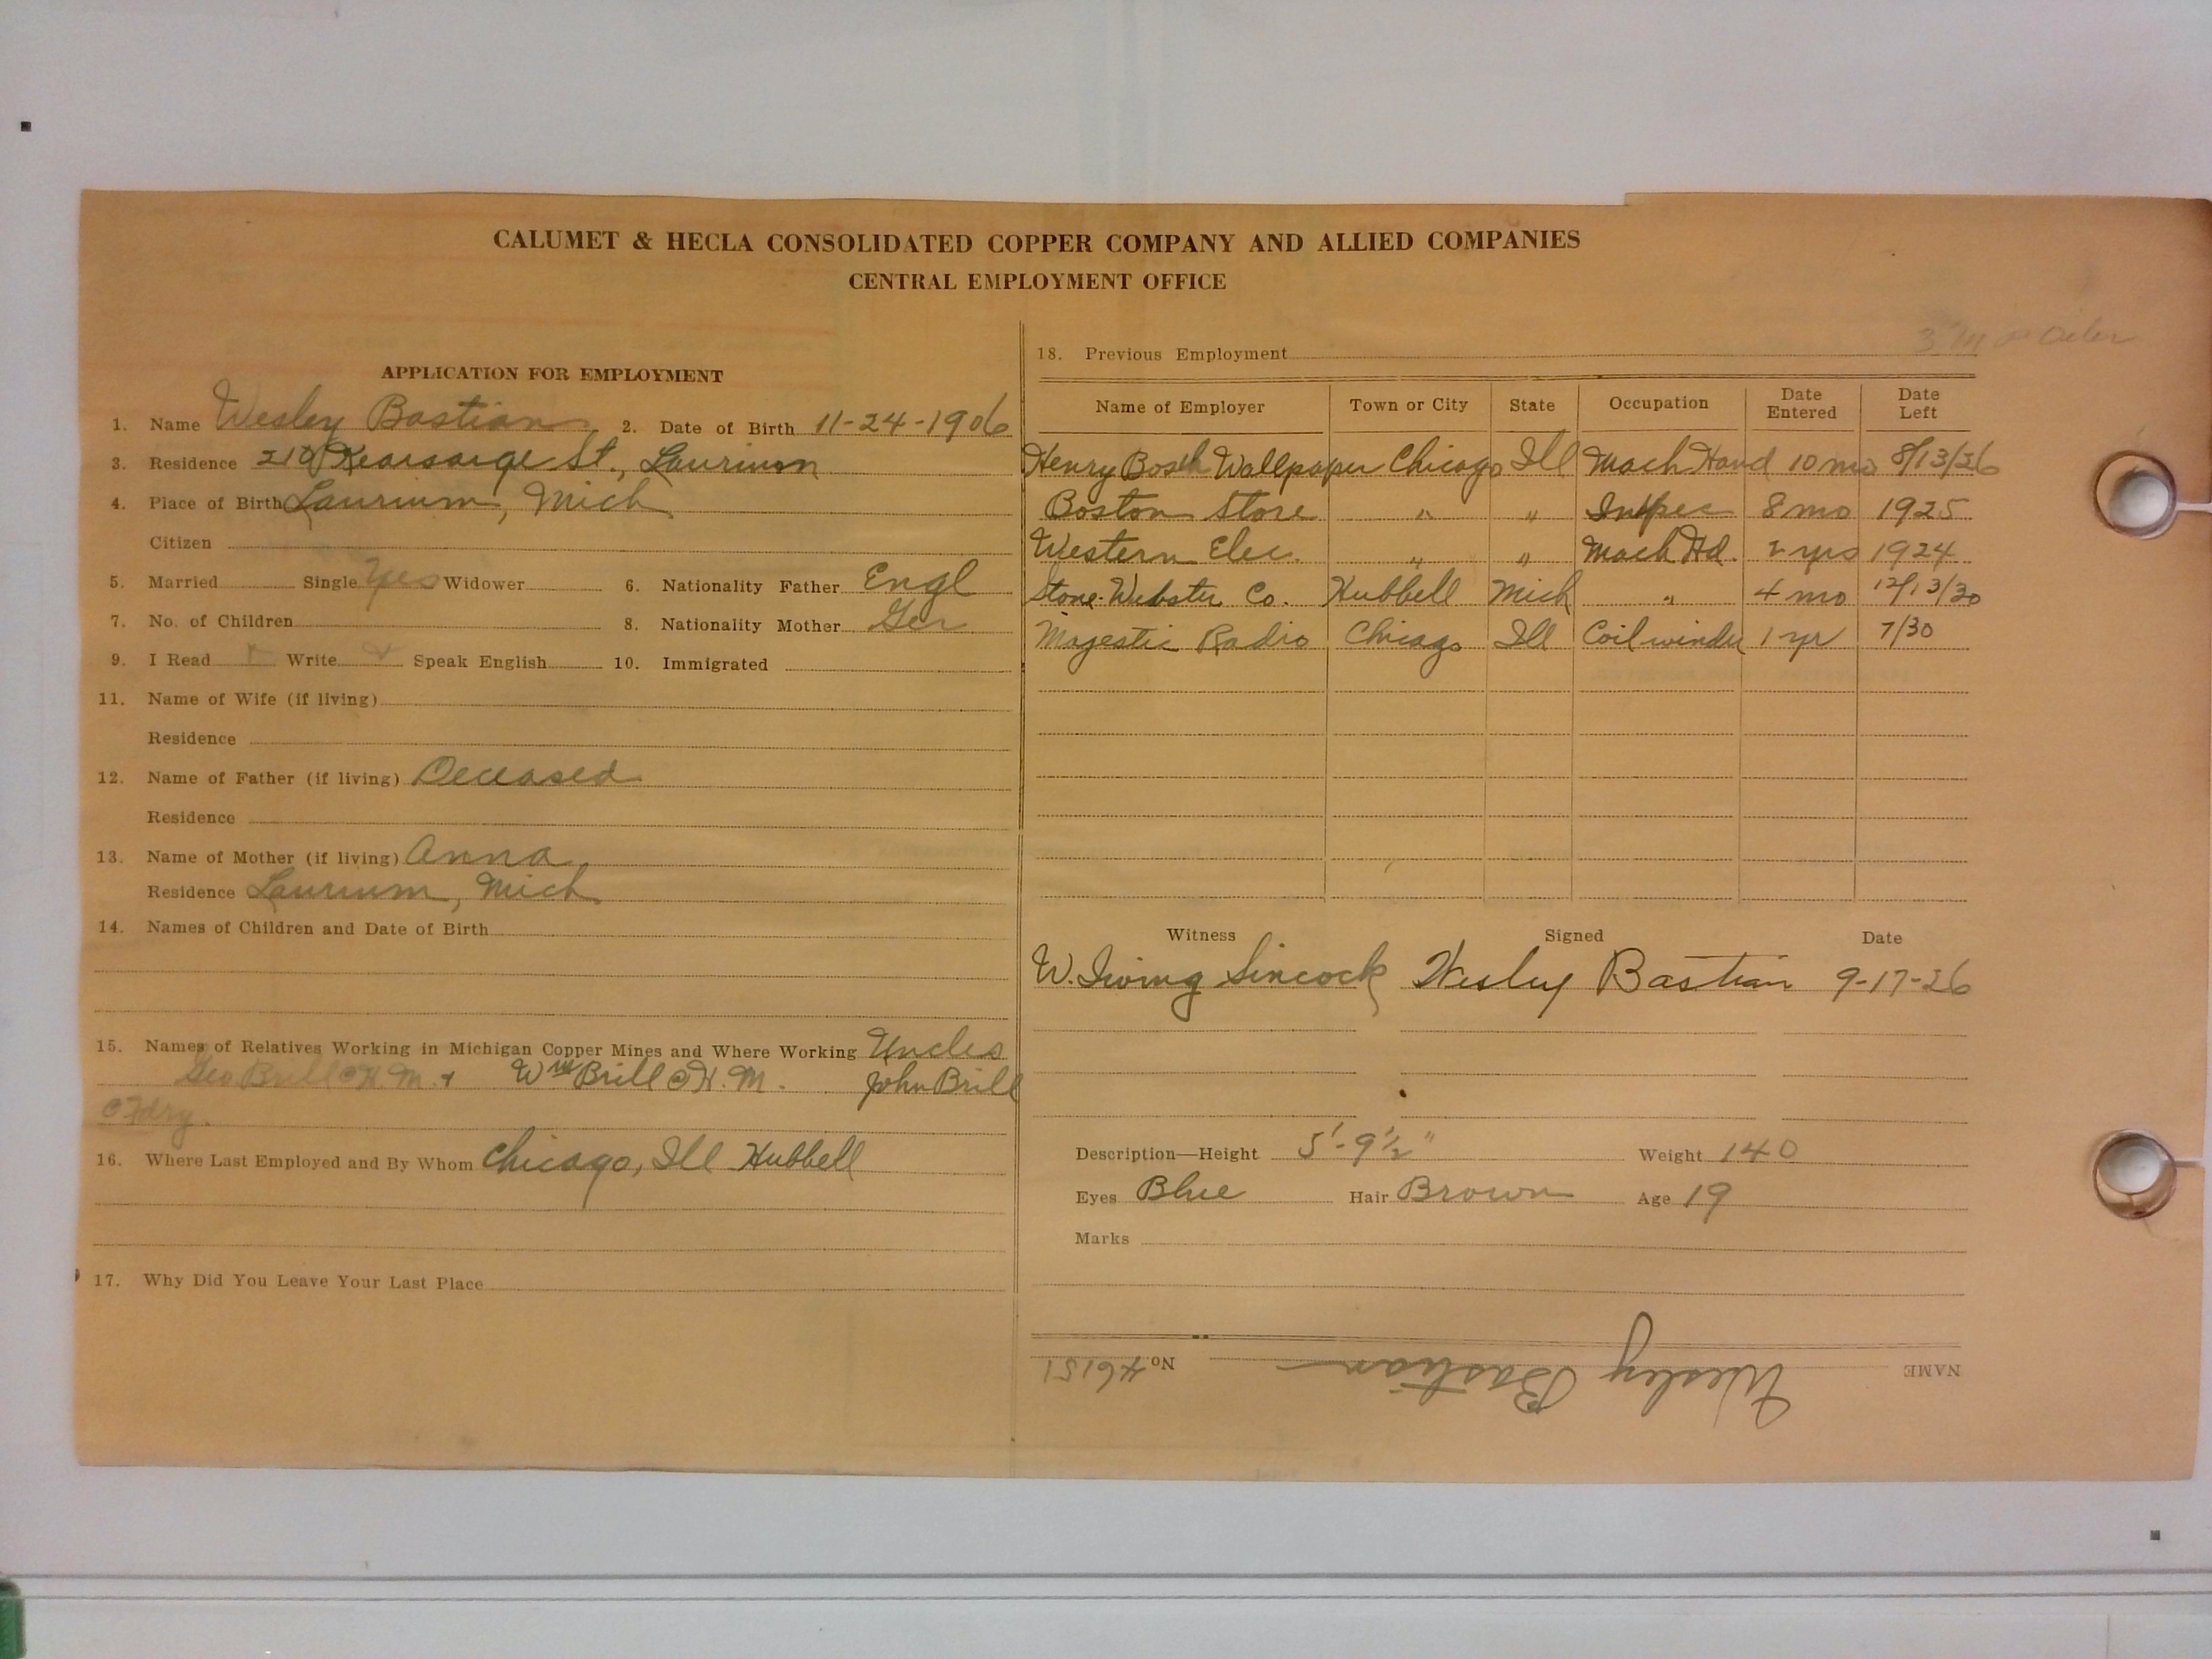 CALUMET & HECLA CONSOLIDATED COPPER COMPANY AND ALLIED COMPANIES
CENTRAL EMPLOYMENT OFFICE
APPLICATION FOR EMPLOYMENT
1. Name Wesley Bastian 2. Date of Birth 11-24-1906
3. Residence 210 Kearsarge St., Laurium
4. Place of Birth Laurium, Mich
Citizen
5. Married Single Yes Widower 6. Nationality Father Engl
7. No. of Children 8. Nationality Mother Ger
9. I Read Write Speak English 10. Immigrated
11. Name of Wife (if living)
Residence
12. Name of Father (if living) Deceased
Residence
13. Name of Mother (if living) Anna
Residence Laurium, Mich
14. Names of Children and Date of Birth
15. Names of Relatives Working in Michigan Copper Mines and Where Working Uncles
Geo Brill C H. M. + Wm Brill C H. M. John Brill
C Fdry.
16. Where Last Employed and By Whom Chicago, Ill Hubbell
17. Why Did You Leave Your Last Place
18. Previous Employment
Name of Employer Town or City State Occupation Date Entered Date Left
Henry Bosch Wallpaper Chicago Ill Mach Hand 10 mo 8/13/26
Boston Store " " Inspec 8 mo 1925
Western Elec. " " Mach Hd. 2 yrs 1924
Stone-Webster Co. Hubbell Mich " 4 mo 12/13/30
Majestic Radio Chicago Ill Coil winder 1 yr 7/30
Witness Signed Date
W. Irving Sincock Wesley Bastian 9-17-26
Description—Height 5'-9½" Weight 140
Eyes Blue Hair Brown Age 19
Marks
NAME Wesley Bastian No. 46151